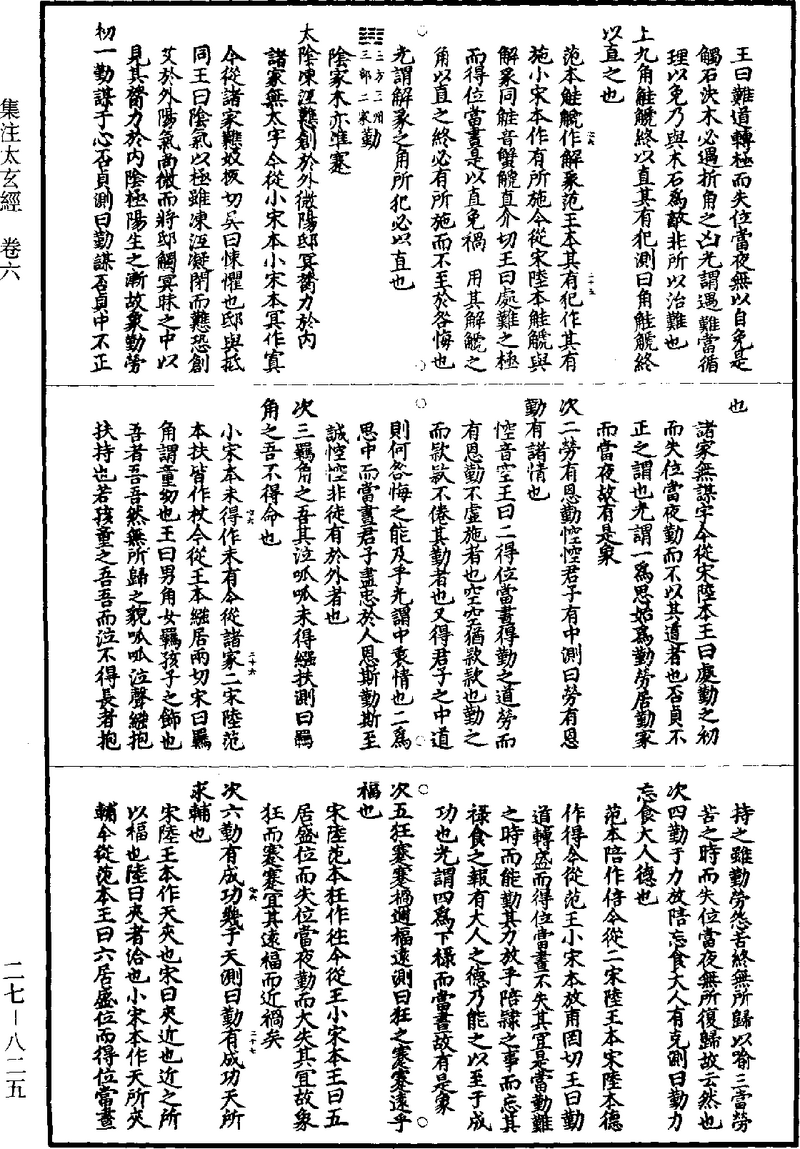 王曰難道轉極而失位當夜無以自免是
觸石決木必遇折角之凶光謂遇難當循
理以免乃與木石為敵非所以治難也
上九角觟䚦終以直其有犯測曰角觟䚦終
以直之也
范本觟䚦作解豸范王本其有犯作其有
施小宋本作有所施今從宋陸本觟䚦與
解豸同觟音蟹䚦直介切王曰處難之極
而得位當晝是以直免禍 用其解䚦之
角以直之終必有所施而不至於咎悔也
光謂解豸之角所犯必以直也
三方三州
三部二家勤
陰家木亦準蹇
太陰凍沍戁創於外微陽邸冥膂力於内
諸家無太字今從小宋本小宋本冥作寘
今從諸家戁奴板切吳曰悚懼也邸與抵
同王曰陰氣以極雖凍沍凝閉而戁恐創
艾於外陽氣尚微而將邸觸冥昧之中以
見其膂力於内陰極陽生之漸故象勤勞
初一勤謀于心否貞測曰勤謀否貞中不正
也
諸家無謀字今從宋陸本王曰處勤之初
而失位當夜勤而不以其道者也否貞不
正之謂也光謂一為思始為勤勞居勤家
而當夜故有是象
次二勞有恩勤悾悾君子有中測曰勞有恩
勤有諸情也
悾音空王曰二得位當晝得勤之道勞而
有恩勤不虛施者也空空猶款款也勤之
而款款不倦其勤者也又得君子之中道
則何咎悔之能及乎光謂中衷情也二為
思中而當晝君子盡忠於人恩斯勤斯至
誠悾悾非徒有於外者也
次三羈角之吾其泣呱呱未得繈扶測曰羈
角之吾不得命也
小宋本未得作未有今從諸家二宋陸范
本扶皆作杖今從王本繈居兩切宋曰羈
角謂童幼也王曰男角女羈孩子之飾也
吾者吾吾然無所歸之貌呱呱泣聲繈抱
扶持也若孩童之吾吾而泣不得長者抱
持之雖勤勞怨苦終無所歸以喻三當勞
苦之時而失位當夜無所復歸故云然也
次四勤于力放陪忘食大人有克測曰勤力
忘食大人德也
范本陪作倍今從二宋陸王本宋陸本德
作得今從范王小宋本放甫罔切王曰勤
道轉盛而得位當晝不失其宜是當勤難
之時而能勤其力放乎陪隸之事而忘其
祿食之報有大人之德乃能之以至于成
功也光謂四為下祿而當晝故有是象
次五狂蹇蹇禍邇福遠測曰狂之蹇蹇遠乎
福也
宋陸范本狂作往今從王小宋本王曰五
居盛位而失位當夜勤而大失其宜故象
狂而蹇蹇宜其遠福而近禍矣
次六勤有成功幾于天測曰勤有成功天所
求輔也
宋陸王本作天夾也宋曰夾近也近之所
以福也陸曰夾者洽也小宋本作天所夾
輔今從范本王曰六居盛位而得位當晝
集注太玄經 卷六
二七－八二五